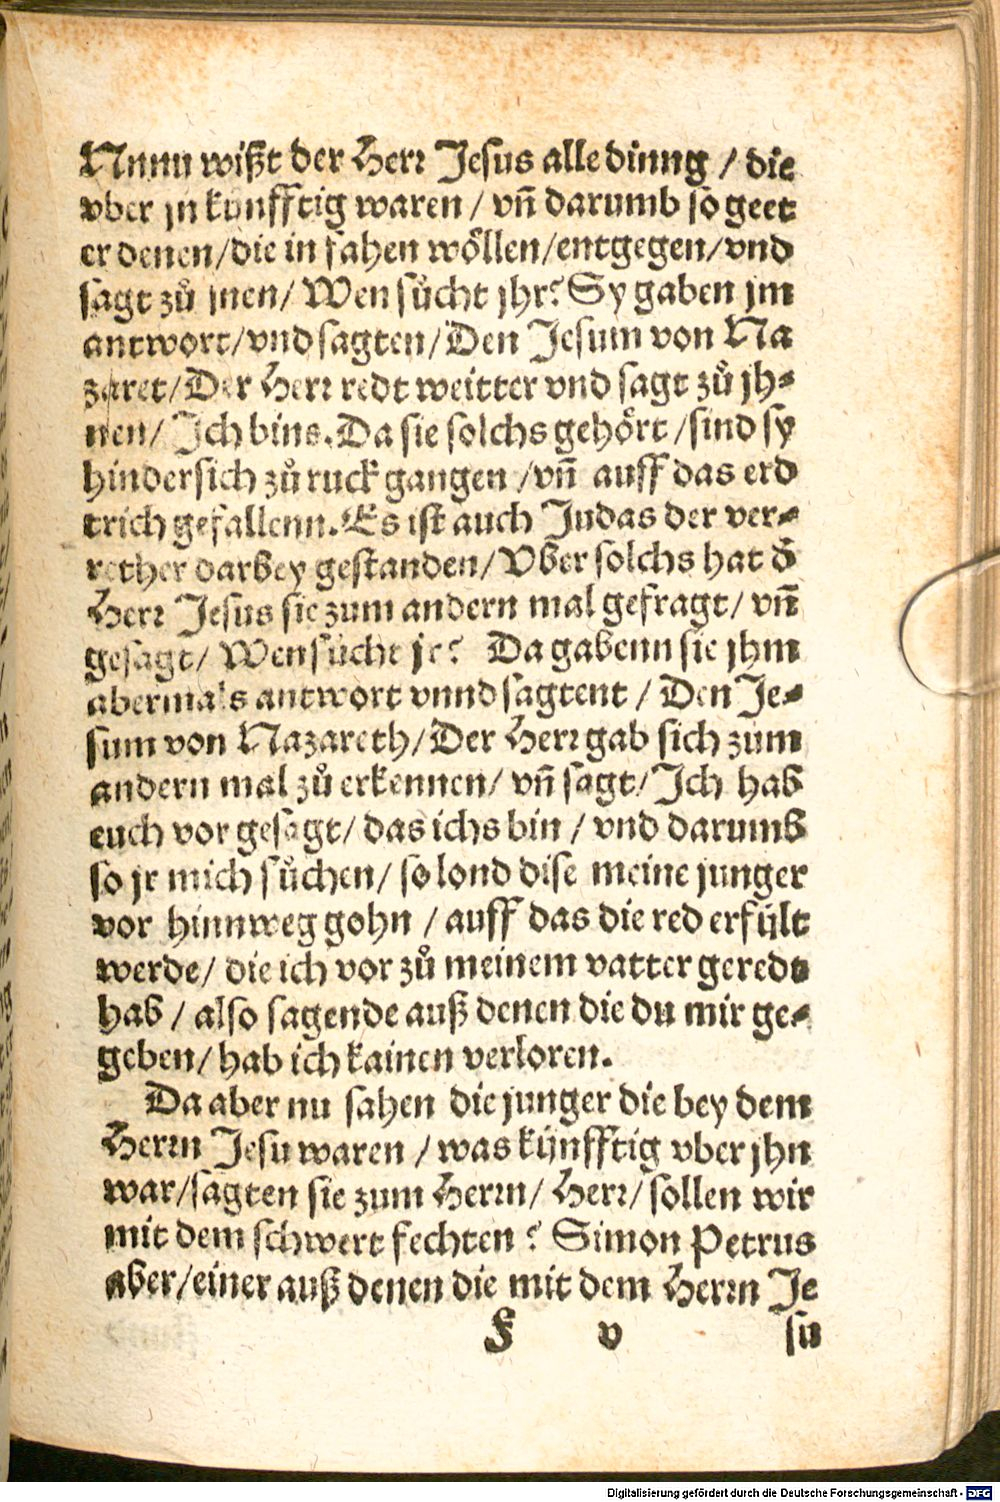 Nunu wißt der Herr Jesus alle dinng / die
vber jn künfftig waren / vñ darumb so geet
er denen/die in fahen wöllen/entgegen/vnd
sagt zů jnen/ Wen sůcht jhr? Sy gaben jm
antwort/vnd sagten/Den Jesum von Na
zaret/Der Herr redt weitter vnd sagt zů jh-
nen/ Ich bins. Da sie solchs gehört /sind sy
hindersich zů ruck gangen /vñ auff das erd
trich gefallenn. Es ist auch Judas der ver-
rether darbey gestanden/ Vber solchs hat d̕
Herr Jesus sie zum andern mal gefragt/ vñ
gesagt/ Wen sůcht jr? Da gabenn sie jhm
abermals antwort vnnd sagtent / Den Je-
sum von Nazareth/Der Herr gab sich zum
andern mal zů erkennen/ vñ sagt/Ich hab
euch vor gesagt/ das ichs bin / vnd darumb
so jr mich sůchen/ so lond dise meine junger
vor hinnweg gohn / auff das die red erfült
werde/ die ich vor zů meinem vatter geredt
hab / also sagende auß denen die du mir ge-
geben/ hab ich kainen verloren.
Da aber nu sahen die junger die bey dem
Herrn Jesu waren / was künfftig vber jhn
war/sagten sie zum Herrn/ Herr/ sollen wir
mit dem schwert fechten ? Simon Petrus
aber/einer auß denen die mit dem Herrn Je
F v su
Digitalisierung gefördert durch die Deutsche Forschungsgemeinschaft - DFG